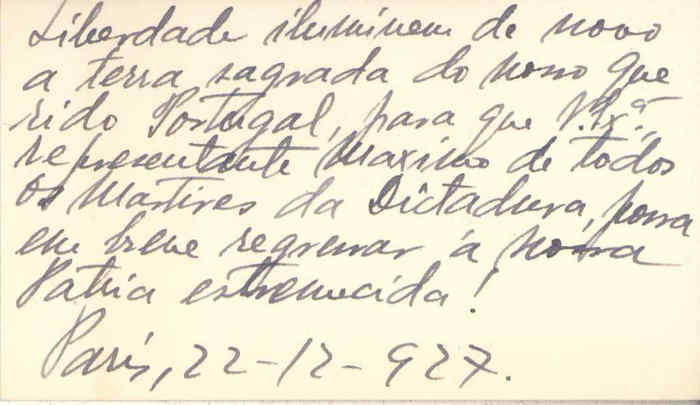 Liberdade iluminem de novo
a terra sagrada do nosso que
rido Portugal, para que V. Exª.,
representante Maximo de todos
os Martires da Dictadura, possa
em breve regressar á nossa
Patria estremecida!
Paris, 22-12-927.